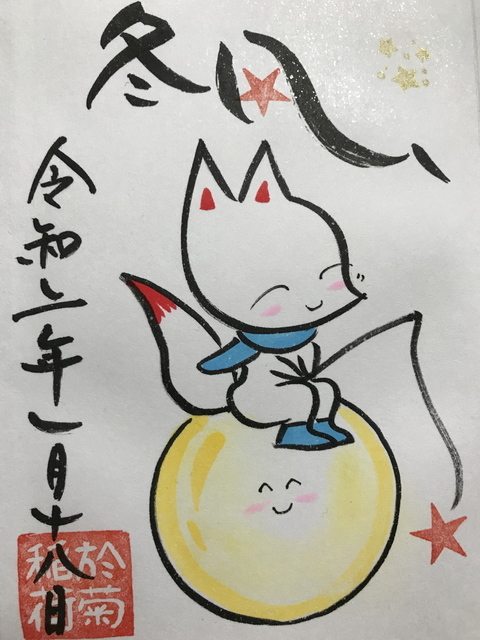 冬
令和二年一月十八日
於菊
稲荷